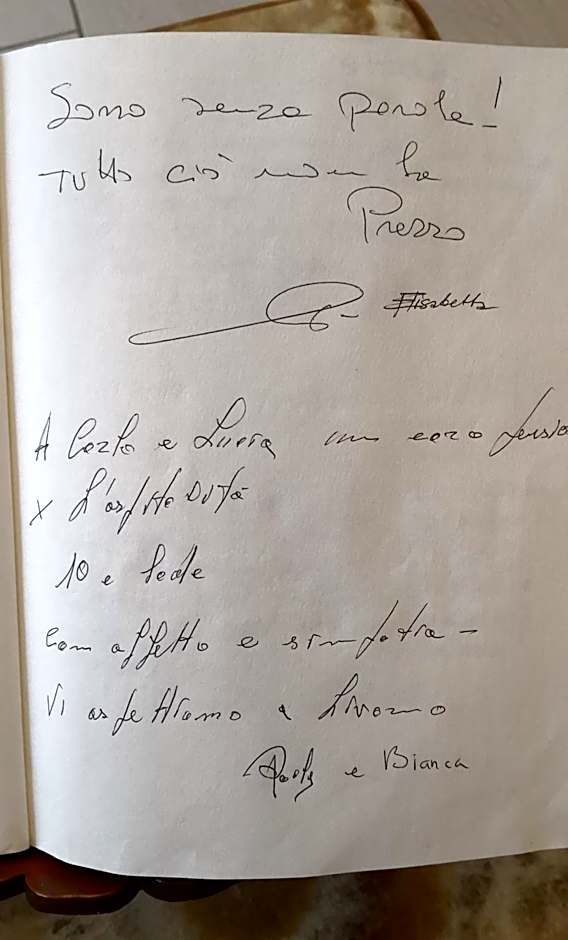 Sono senza parole!
Tutto ciò non ha
Prezzo
Elisabetta
A Carlo e Lucia un caro
x L'ospitalità
10 e lode
Con affetto e simpatia -
Vi aspettiamo a Livorno
e Bianca